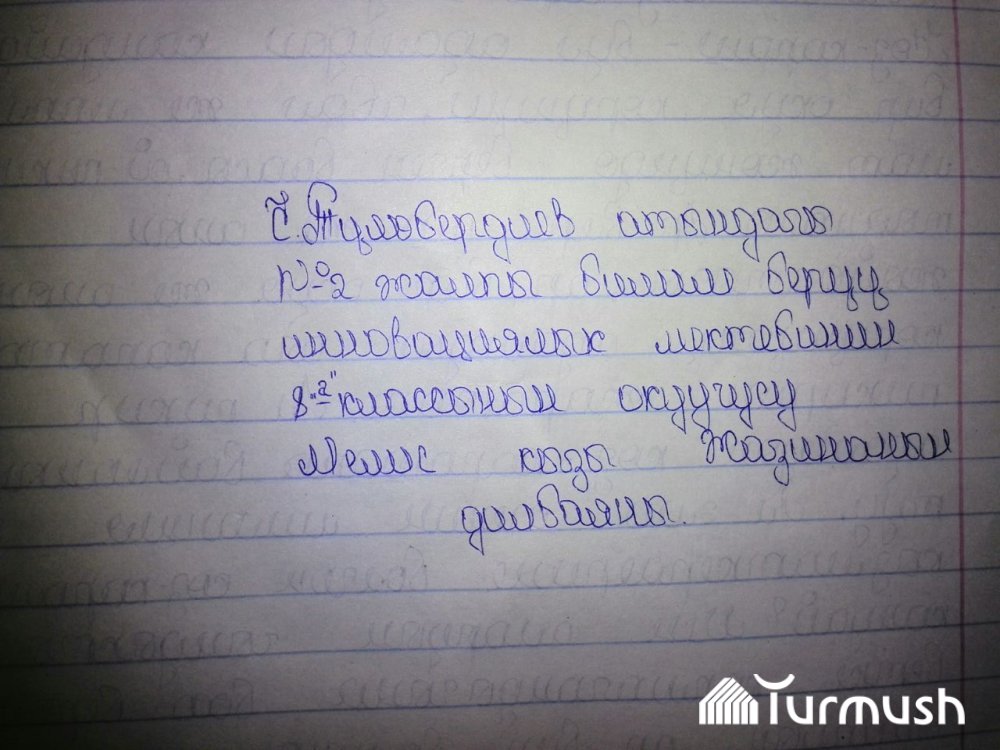 Ч. Түлөбердиев атындагы
№2 жалпы билим берүү
инновациялык мектебинин
8-"г" классынын окуучусу
Мелис кызы Жазиманын
дилбаяны.
Turmush